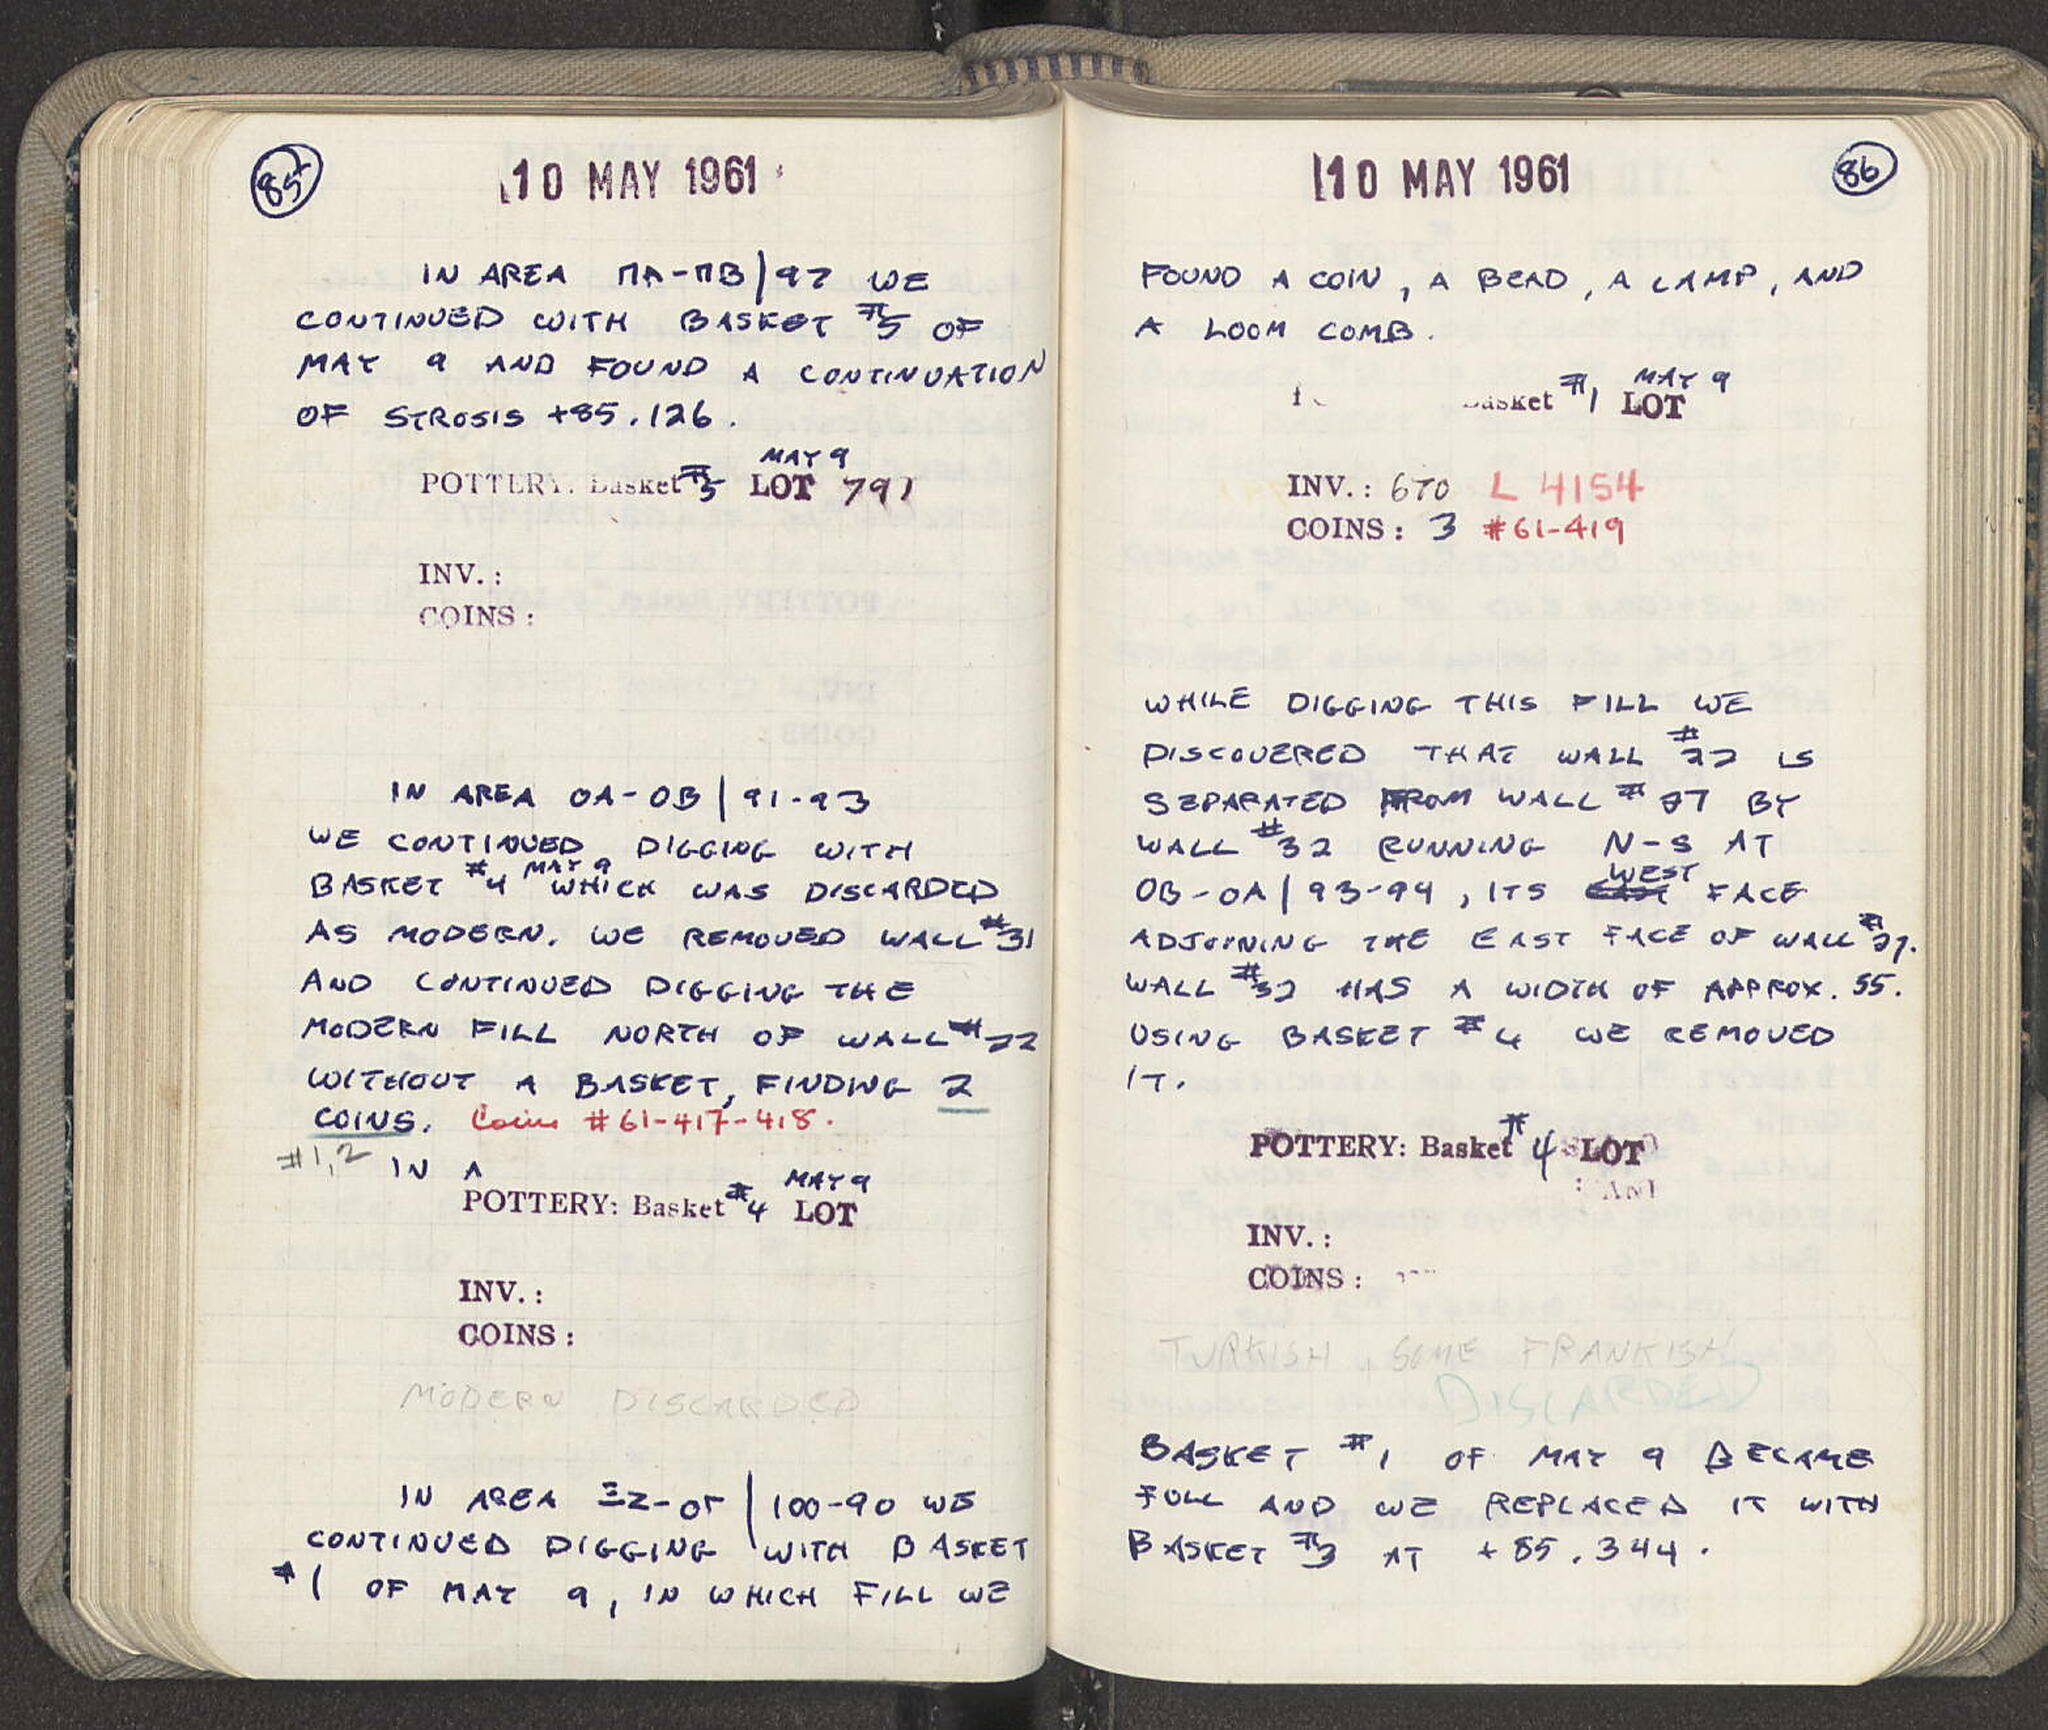 85
10 MAY 1961
IN AREA ΠA-ΠB/97 WE
CONTINUED WITH BASKET #5 OF
MAY 9 AND FOUND A CONTINUATION
OF STROSIS +85.126.
MAY 9
POTTERY: Basket #5 LOT 791
INV.:
COINS:
IN AREA OA-OB/91-93
WE CONTINUED DIGGING WITH
BASKET #4 MAY 9 WHICH WAS DISCARDED
AS MODERN. WE REMOVED WALL #31
AND CONTINUED DIGGING THE
MODERN FILL NORTH OF WALL #22
WITHOUT A BASKET, FINDING 2
COINS. Coins #61-417-418.
#1,2 IN A
MAY 9
POTTERY: Basket #4 LOT
INV.:
COINS:
MODERN DISCARDED
IN AREA ΞZ-OΓ/100-90 WE
CONTINUED DIGGING WITH BASKET
#1 OF MAY 9, IN WHICH FILL WE
10 MAY 1961
86
FOUND A COIN, A BEAD, A LAMP, AND
A LOOM COMB.
MAY 9
Basket #1 LOT
INV.: 670 L 4154
COINS: 3 #61-419
WHILE DIGGING THIS FILL WE
DISCOVERED THAT WALL #22 IS
SEPARATED FROM WALL #27 BY
WALL #32 RUNNING N-S AT
OB-OA/93-94, ITS WEST FACE
ADJOINING THE EAST FACE OF WALL #27.
WALL #32 HAS A WIDTH OF APPROX. 55.
USING BASKET #4 WE REMOVED
IT.
POTTERY: Basket #4 LOT
INV.:
COINS:
TURKISH, SOME FRANKISH
DISCARDED
BASKET #1 OF MAY 9 BECAME
FULL AND WE REPLACED IT WITH
BASKET #3 AT +85.344.